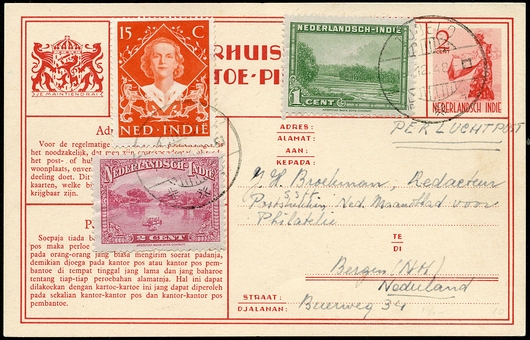 JE MAINTIENDRAI
15 C
NED·INDIË
RHUIS
TOE-PI
NEDERLANDSCH-INDIË
1
CENT
2
NEDERLANDSCH INDIË
PER LUCHTPOST
Adr
Voor de regelmatige
het noodzakelijk, dat
het post- of hu
woonplaats, enver
deeling doet. Dit
kaarten, welke bij
krijgbaar zijn.
NEDERLANDSCH-INDIË
2 CENT
P
Soepaja tiada
pos maka perloe
pada orang-orang jang biasa mengirim soerat padanja,
demikian djoega pada kantor pos atau kantor pos pem-
bantoe di tempat tinggal jang lama dan jang baharoe
tentang tiap-tiap peroebahan alamatnja. Hal ini dapat
dilakoekan dengan kartoe-kartoe ini jang dapat diperoleh
pada sekalian kantor-kantor pos dan kantor-kantor pos
pembantoe.
ADRES:
ALAMAT:
AAN:
KEPADA:
Broekman, Redacteur
Ned. Maandblad voor
Philatelie
TE
DI
Bergen (NH)
Nederland
STRAAT:
DJALANAN:
Beierweg 34